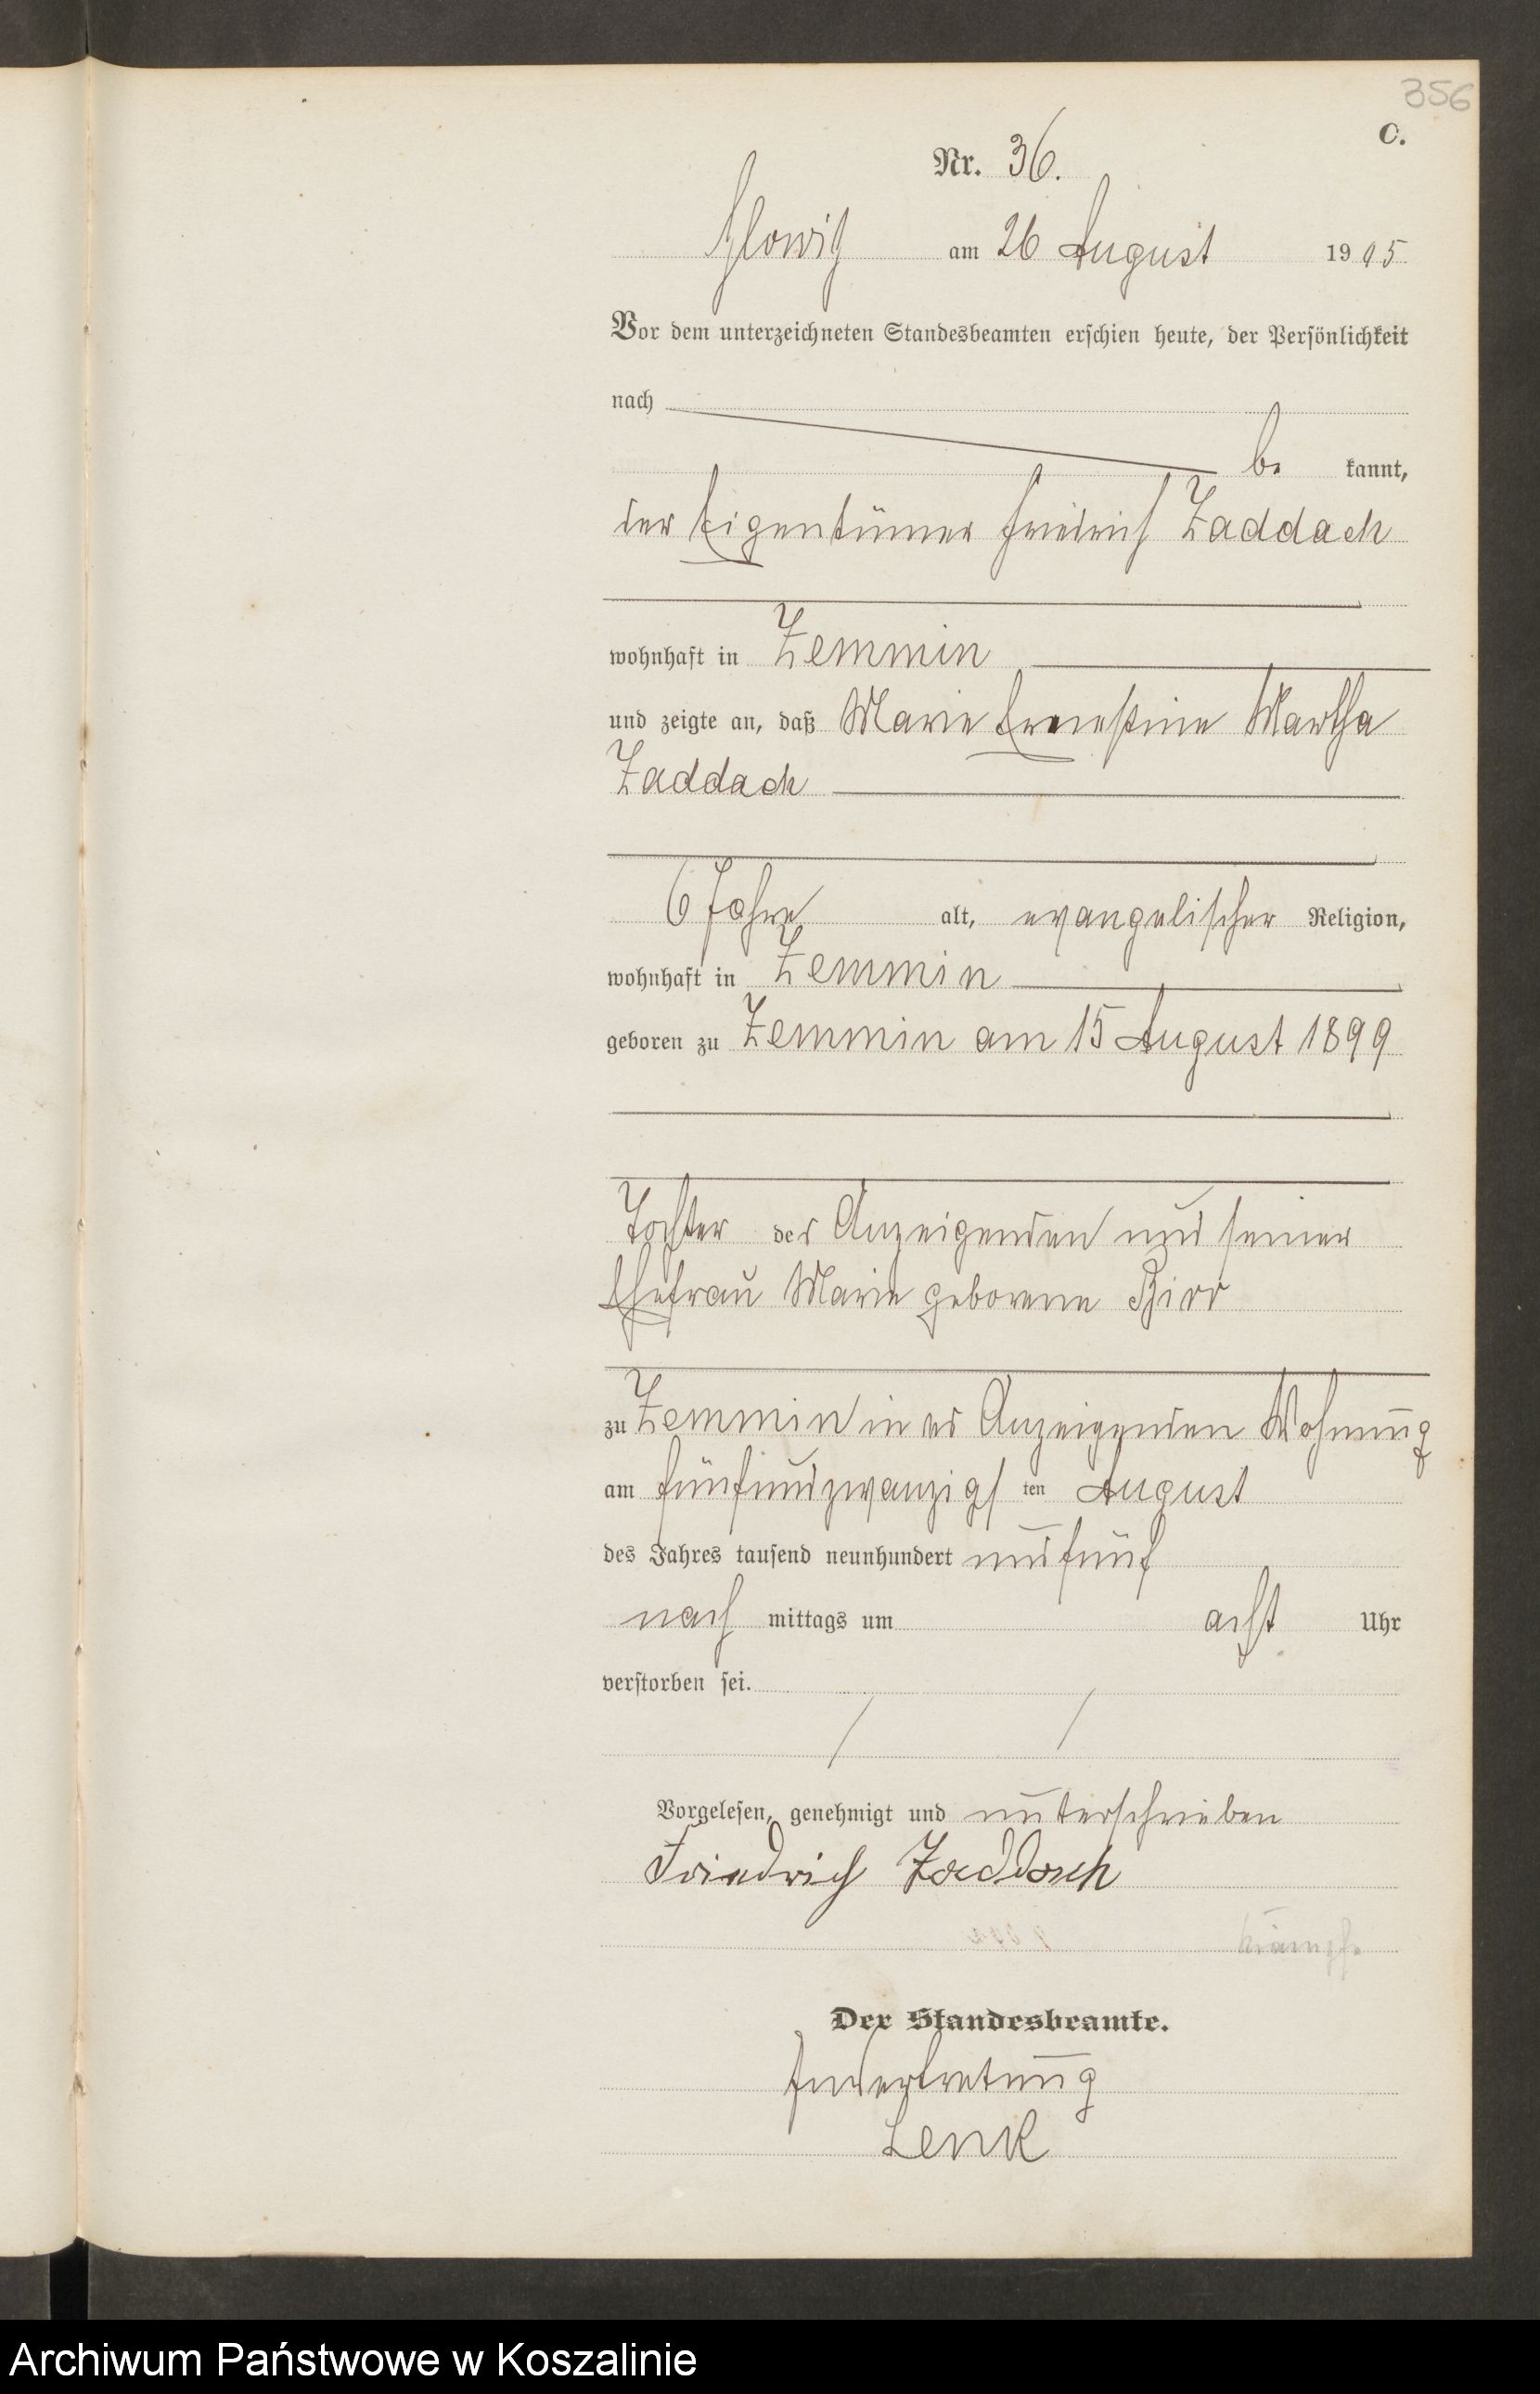 356
C.
Nr. 36.
Glowitz am 26 August 1905
Vor dem unterzeichneten Standesbeamten erschien heute, der Persönlichkeit
nach
be kannt,
der Eigentümer Friedrich Zaddach
wohnhaft in Zemmin
und zeigte an, daß Marie Ernestine Martha
Zaddach
6 Jahre alt, evangelischer Religion,
wohnhaft in Zemmin
geboren zu Zemmin am 15 August 1899
Tochter des Anzeigenden und seiner
Ehefrau Marie geborene Birr
zu Zemmin in des Anzeigenden Wohnung
am fünfundzwanzigsten August
des Jahres tausend neunhundert und fünf
nach mittags um acht Uhr
verstorben sei.
Vorgelesen, genehmigt und unterschrieben
Friedrich Zaddach
Krämpfe
Der Standesbeamte.
In Vertretung
Lenk
Archiwum Państwowe w Koszalinie